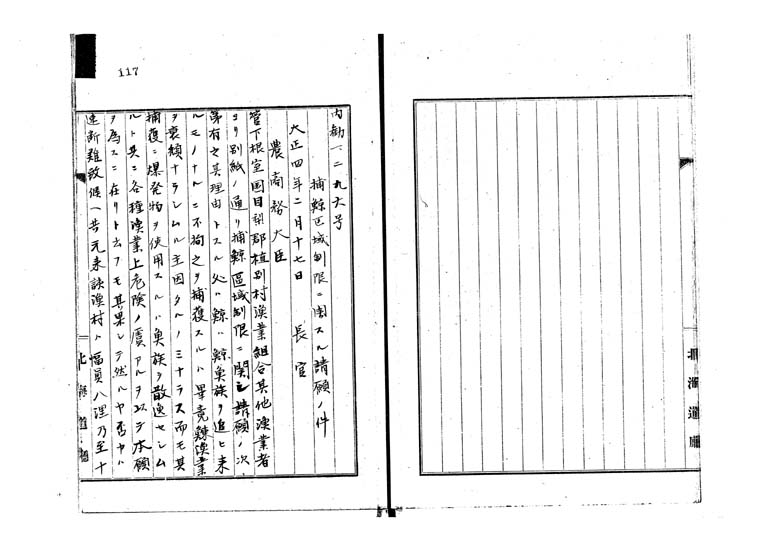 内勧一二九六号
捕鯨区域制限ニ関スル請願ノ件
大正四年二月十七日　長官
農商務大臣
管下根室国目梨郡植別村漁業組合其他漁業者
ヨリ別紙ノ通リ捕鯨區域制限ニ関シ請願ノ次
第有之其理由トスル処ハ鯨ハ鰊魚族ヲ追ヒ来
ルモノナルニ不拘之ヲ捕獲スルハ畢竟鰊漁業
ヲ衰頽ナラシムル主因タルノミナラス而モ其
捕獲ニ爆発物ヲ使用スルハ魚族ヲ散逸セシム
ルト共ニ各種漁業上危険ノ虞アルヲ以テ本願
ヲ為スニ在リト云フモ其果シテ然ルヤ否ヤハ
速断難致候ヘ共元来該漁村ハ幅員八浬乃至十
北海道廳
北海道廳
117